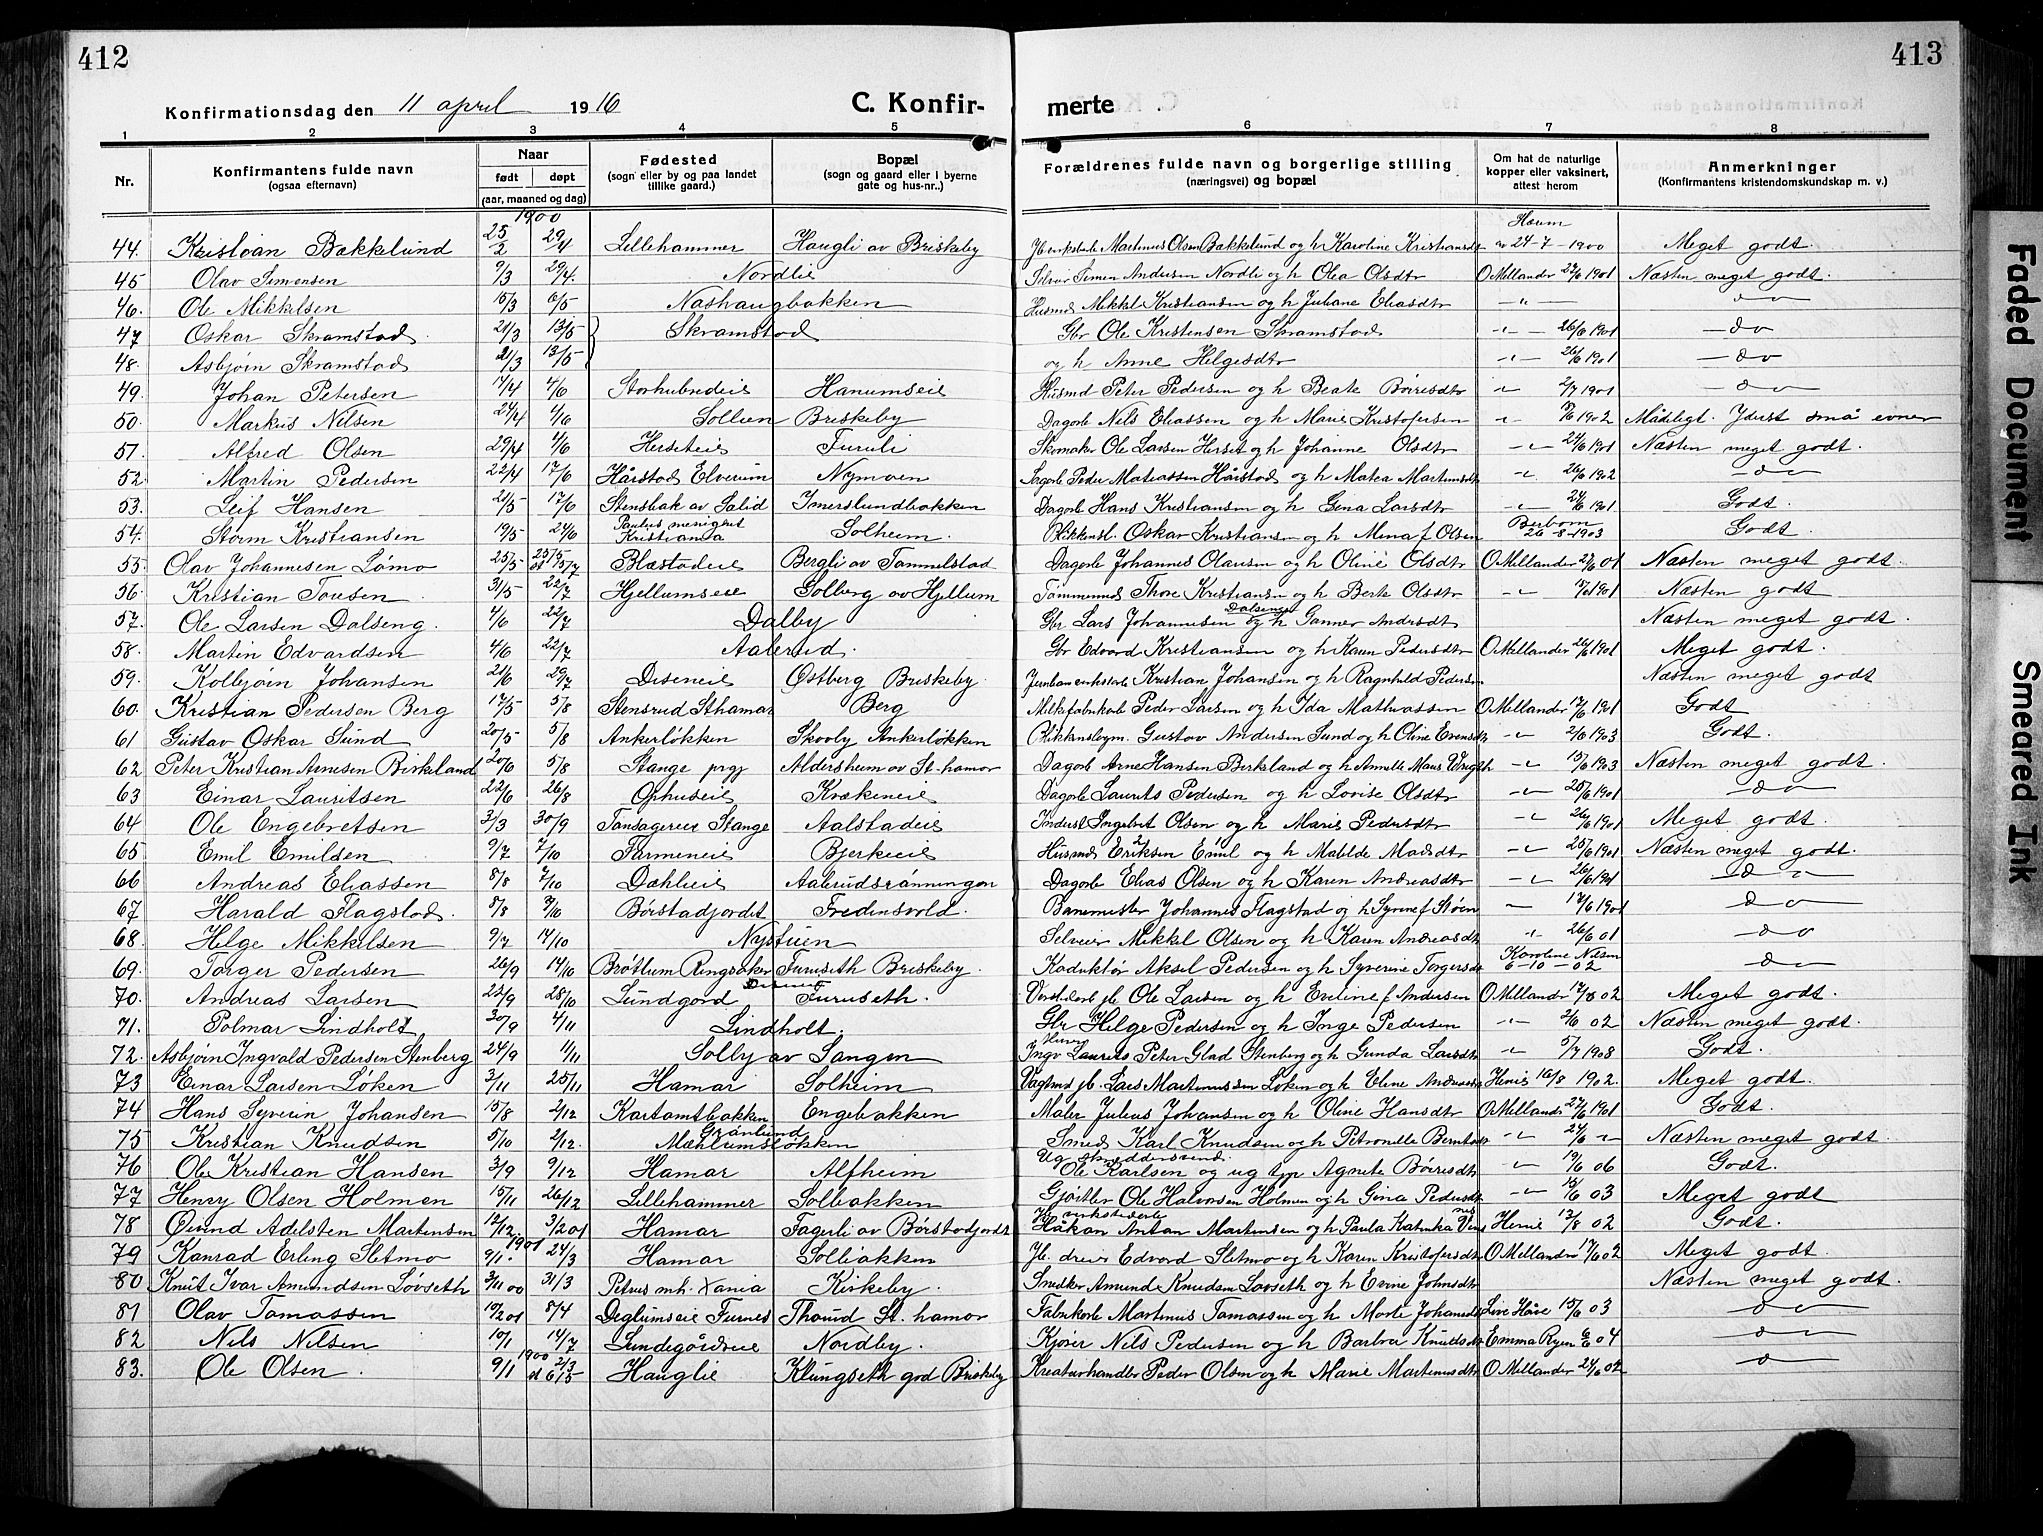 412
413
Konfirmationsdag den 11 april 1916
C. Konfir-
merte
1 2 3 4 5 6 7 8
Nr.
Konfirmantens fulde navn
(ogsaa efternavn)
Naar
født døpt
(aar, maaned og dag)
Fødested
(sogn eller by og paa landet tillike gaard.)
Bopæl
(sogn og gaard eller i byerne gate og hus-nr..)
Forældrenes fulde navn og borgerlige stilling
(næringsvei) og bopæl
Om hat de naturlige kopper eller vaksinert, attest herom
Anmerkninger
(Konfirmantens kristendomskundskap m. v.)
1900
44. Kristian Bakkelund 25/2 29/4 Lillehammer Haugli av Briskeby Martinus Olsen Bakkelund og h Karoline Kristiansdtr 24-7-1900 Meget godt.
45 Olav Simensen 9/3 29/4. Nordlie Simen Andersen Nordli og h Olea Olsdtr O Mellander 27/6 1901 Næsten meget godt.
46. Ole Mikkelsen 15/3 6/5 Nashaugbakken Husmd Mikkel Kristiansen og h Juliane Eliasdtr -"- do
47 Oskar Skramstad 21/3 13/5 Skramstad Gbr Ole Kristensen Skramstad -"- 26/6 1901 -do
48. Asbjørn Skramstad 21/3 13/5 og h Anne Helgesdtr -"- 26/6 1901 -do
49. Johan Petersen 17/4 4/6 Hanumseie Husmd Peter Pedersen og h Beate Børresdtr 2/7 1901 -do
50. Markus Nilsen 24/4 4/6 Sollien Briskeby Dagarb Nils Eliassen og h Marie Kristofersen 1902 Mådeligt. Yderst små evner
51. Alfred Olsen 29/4 4/6 Herseteie Furuli Skomaker Ole Larsen Herset og h Johanne Olsdtr 24/6 1901 Næsten meget godt.
52. Martin Pedersen 22/4 17/6 Hårstad Elverum Nymoen Sagarb Peder Matiassen Hårstad og h Matea Martinsdtr 26/6 1902 do
53. Leif Hansen 21/5 17/6 Stensbak av Salid Imerslundbakken Dagarb Hans Kristiansen og h Gina Larsdtr 27/6 1901 Godt.
54. Storm Kristiansen 19/5 24/6 Paulus menighet Kristiania Solheim. Blikkensl. Oskar Kristiansen og h Mina f Olsen 26-8-1903 Godt
55. Olav Johannesen Lømo 25/5 Blæstadeie Bergli av Tommelstad Dagarb Johannes Olausen og h Oline Olsdtr O Mellander 27/6 01 Næsten meget godt.
56. Kristian Toresen 31/5 22/7 Hjellumseie Solberg av Hjellum Tømmermd Thore Kristiansen og h Berte Olsdtr 1901 Næsten godt
57. Ole Larsen Dalseng. 4/6 22/7 Dalby Gbr Lars Johannesen Dalseng og h Gunner Andrsdtr Næsten meget godt.
58. Martin Edvardsen 4/6 22/7 Aalerud. Gbr Edvard Kristiansen og h Karen Pedersdtr O Mellander 26/6 1901 Meget godt.
59. Kolbjørn Johansen 21/6 29/7 Diseneie Østberg Briskeby. Kristian Johansen og h Ragnhild Pedersen Næsten meget godt
60. Kristian Pedersen Berg 17/5 5/8 Stensrud Sthamar Berg Melkfabrikarb Peder Larsen og h Ida Mathiassen O Mellander 17/6 1901 Godt
61 Gustav Oskar Sund 20/5 5/8 Ankerløkken Skovly Ankerløkken Gustav Andersen Sund og h Oline Evensdtr 2/6 1903 Godt.
62 Peter Kristian Arnesen Birkeland 20/6 5/8 Stange prgj Aldersheim av St. hamar Dagarb Arne Hansen Birkland og h Annette Marie 15/6 1903 Næsten meget godt.
63 Einar Lauritsen 22/6 26/8 Ophuseie Krækeneie Dagarb Laurits Pedersen og h Lovise Olsdtr 25/6 1901 do
64 Ole Engebretsen 3/3 30/9 Stange Aalstadeie Inderst Ingebret Olsen og h Marie Pedersdtr 26/6 1901 Meget godt.
65 Emil Emilsen 9/7 7/10 Farmeneie Bjerkeeie Husmd Eriksen Emil og h Matilde Madsdtr 25/6 1901 Næsten meget godt.
66 Andreas Eliassen 8/8 7/10 Dæhlieie Aalerudsrønningen Dagarb Elias Olsen og h Karen Andreasdtr 26/6 1901 do
67 Harald Flagstad. 8/8 Børstadjordet Fredensvold. Banemester Johannes Flagstad og h Syrine f Støen 17/6 1901 do
68 Helge Mikkelsen 9/7 14/10 Nystuen Selveier Mikkel Olsen og h Karen Andreasdtr 26/6 01 do
69. Torger Pedersen 26/9 14/10 Brøttum Ringsaker Furuseth Briskeby. Konduktør Aksel Pedersen og h Syverine Torgersdtr Karoline Nilsen 6-10-02 do
70. Andreas Larsen 22/9 28/10 Lundgård Furuseth. Ole Larsen og h Eveline f Andersen O Mellander 02 Meget godt.
71. Polmar Lindholt 30/9 4/11 Lindholt. Gbr Helge Pedersen og h Inge Pedersen 2/6 02 Næsten meget godt.
72. Asbjørn Ingvald Pedersen Stenberg 24/9 11/11 Solby av Sangen Laurits Peter Glad Stenberg og h Gunda Larsdtr 5/7 1908 Godt.
73 Einar Larsen Løken 3/11 25/11 Hamar Solheim Vagtmd jb. Lars Martinussen Løken og h Eline Andreasdtr Henie 16/8 1902. Meget godt.
74 Hans Syverin Johansen 15/8 2/12 Kartomtbakken Engebakken Maler Julius Johansen og h Oline Hansdtr O Mellander 27/6 1901 Godt.
75 Kristian Knudsen 5/10 2/12. Grønlund Mæhlumsløkken Smed Karl Knudsen og h Petronelle Berntsdtr 24/6 Næsten meget godt.
76 Ole Kristian Hansen 3/9 9/12 Hamar Alfheim Ug smeddersvend Ole Karlsen og ug tjp Agnete Børresdtr 19/6 06 Godt.
77 Henry Olsen Holmen 15/11 26/12 Lillehammer Solbakken Gjørtler Ole Halvorsen Holmen og h Gina Pedersdtr 18/6 03 Meget godt
78 Øivind Adelsten Martinsen 12/12 3/2 01 Hamar Fagerli av Børstadjordet Håkan Antan Martinsen og h Paula Katinka Henie 13/8 02 Godt.
79 Konrad Erling Sletmo 1901 9/1. 24/3 Hamar Solbakken Jb. dreier Edvard Sletmo og h Karen Kristofersdtr O Mellander 17/6 02 Meget godt.
80 Knut Ivar Amundsen Løvseth 3/11 00 31/3 Petrus mh. Xania Kirkeby. Snedker Amund Knudsen Løvseth og h Evine Johnsdtr Næsten meget godt.
81 Olav Tomassen 10/2 01 8/4 Deglumseie Furnes St. hamar Fabrikarb Martinus Tomassen og h Marte Johansdtr Live Håve 15/6 03 do
82 Nils Nilsen 10/1 14/7 Lundegårdseie Nordby. Kjører Nils Pedersen og h Barbra Knudsdtr Emma Ryen 6/6 04 do
83. Ole Olsen. 9/1 1900 Hauglie Klungseth god Briskeby Kreaturhandler Peder Olsen og h Marie Martinusdtr O Mellander 24/6 02 do
Faded Document
Smeared Ink